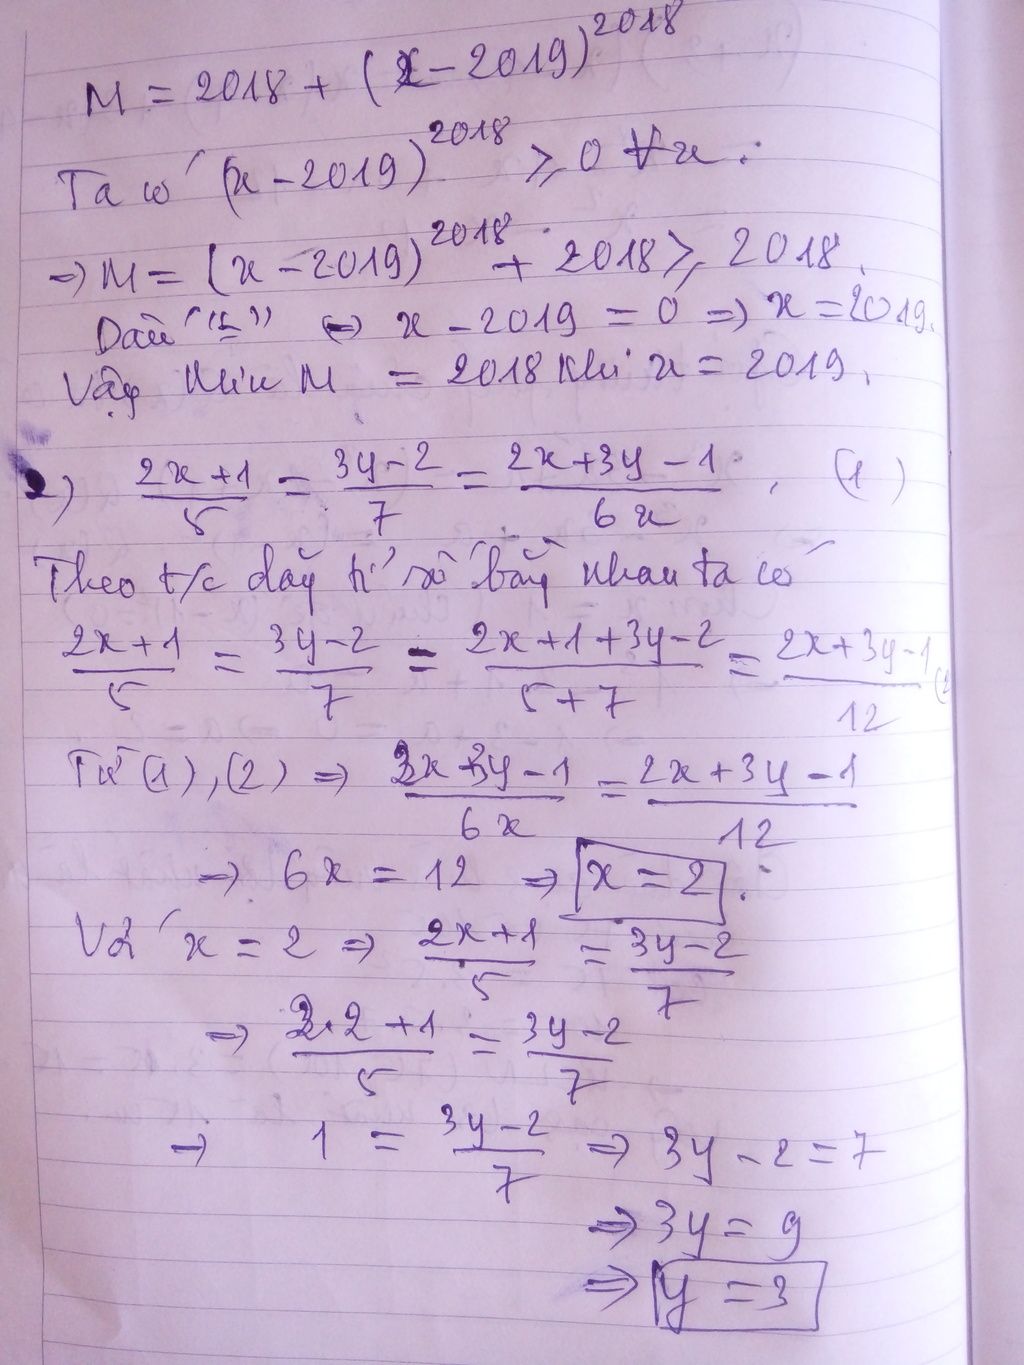 M = 2018 + (x - 2019)^2018
Ta có (x - 2019)^2018 ⩾ 0 ∀x.
=> M = (x - 2019)^2018 + 2018 ⩾ 2018.
Dấu "=" <=> x - 2019 = 0 => x = 2019.
Vậy Min M = 2018 khi x = 2019.
2) (2x+1)/5 = (3y-2)/7 = (2x+3y-1)/(6x). (1)
Theo t/c dãy tỉ số bằng nhau ta có
(2x+1)/5 = (3y-2)/7 = (2x+1+3y-2)/(5+7) = (2x+3y-1)/12 (2
Từ (1), (2) => (2x+3y-1)/(6x) = (2x+3y-1)/12
=> 6x = 12 => x = 2.
Với x = 2 => (2x+1)/5 = (3y-2)/7
=> (2.2+1)/5 = (3y-2)/7
=> 1 = (3y-2)/7 => 3y - 2 = 7
=> 3y = 9
=> y = 3